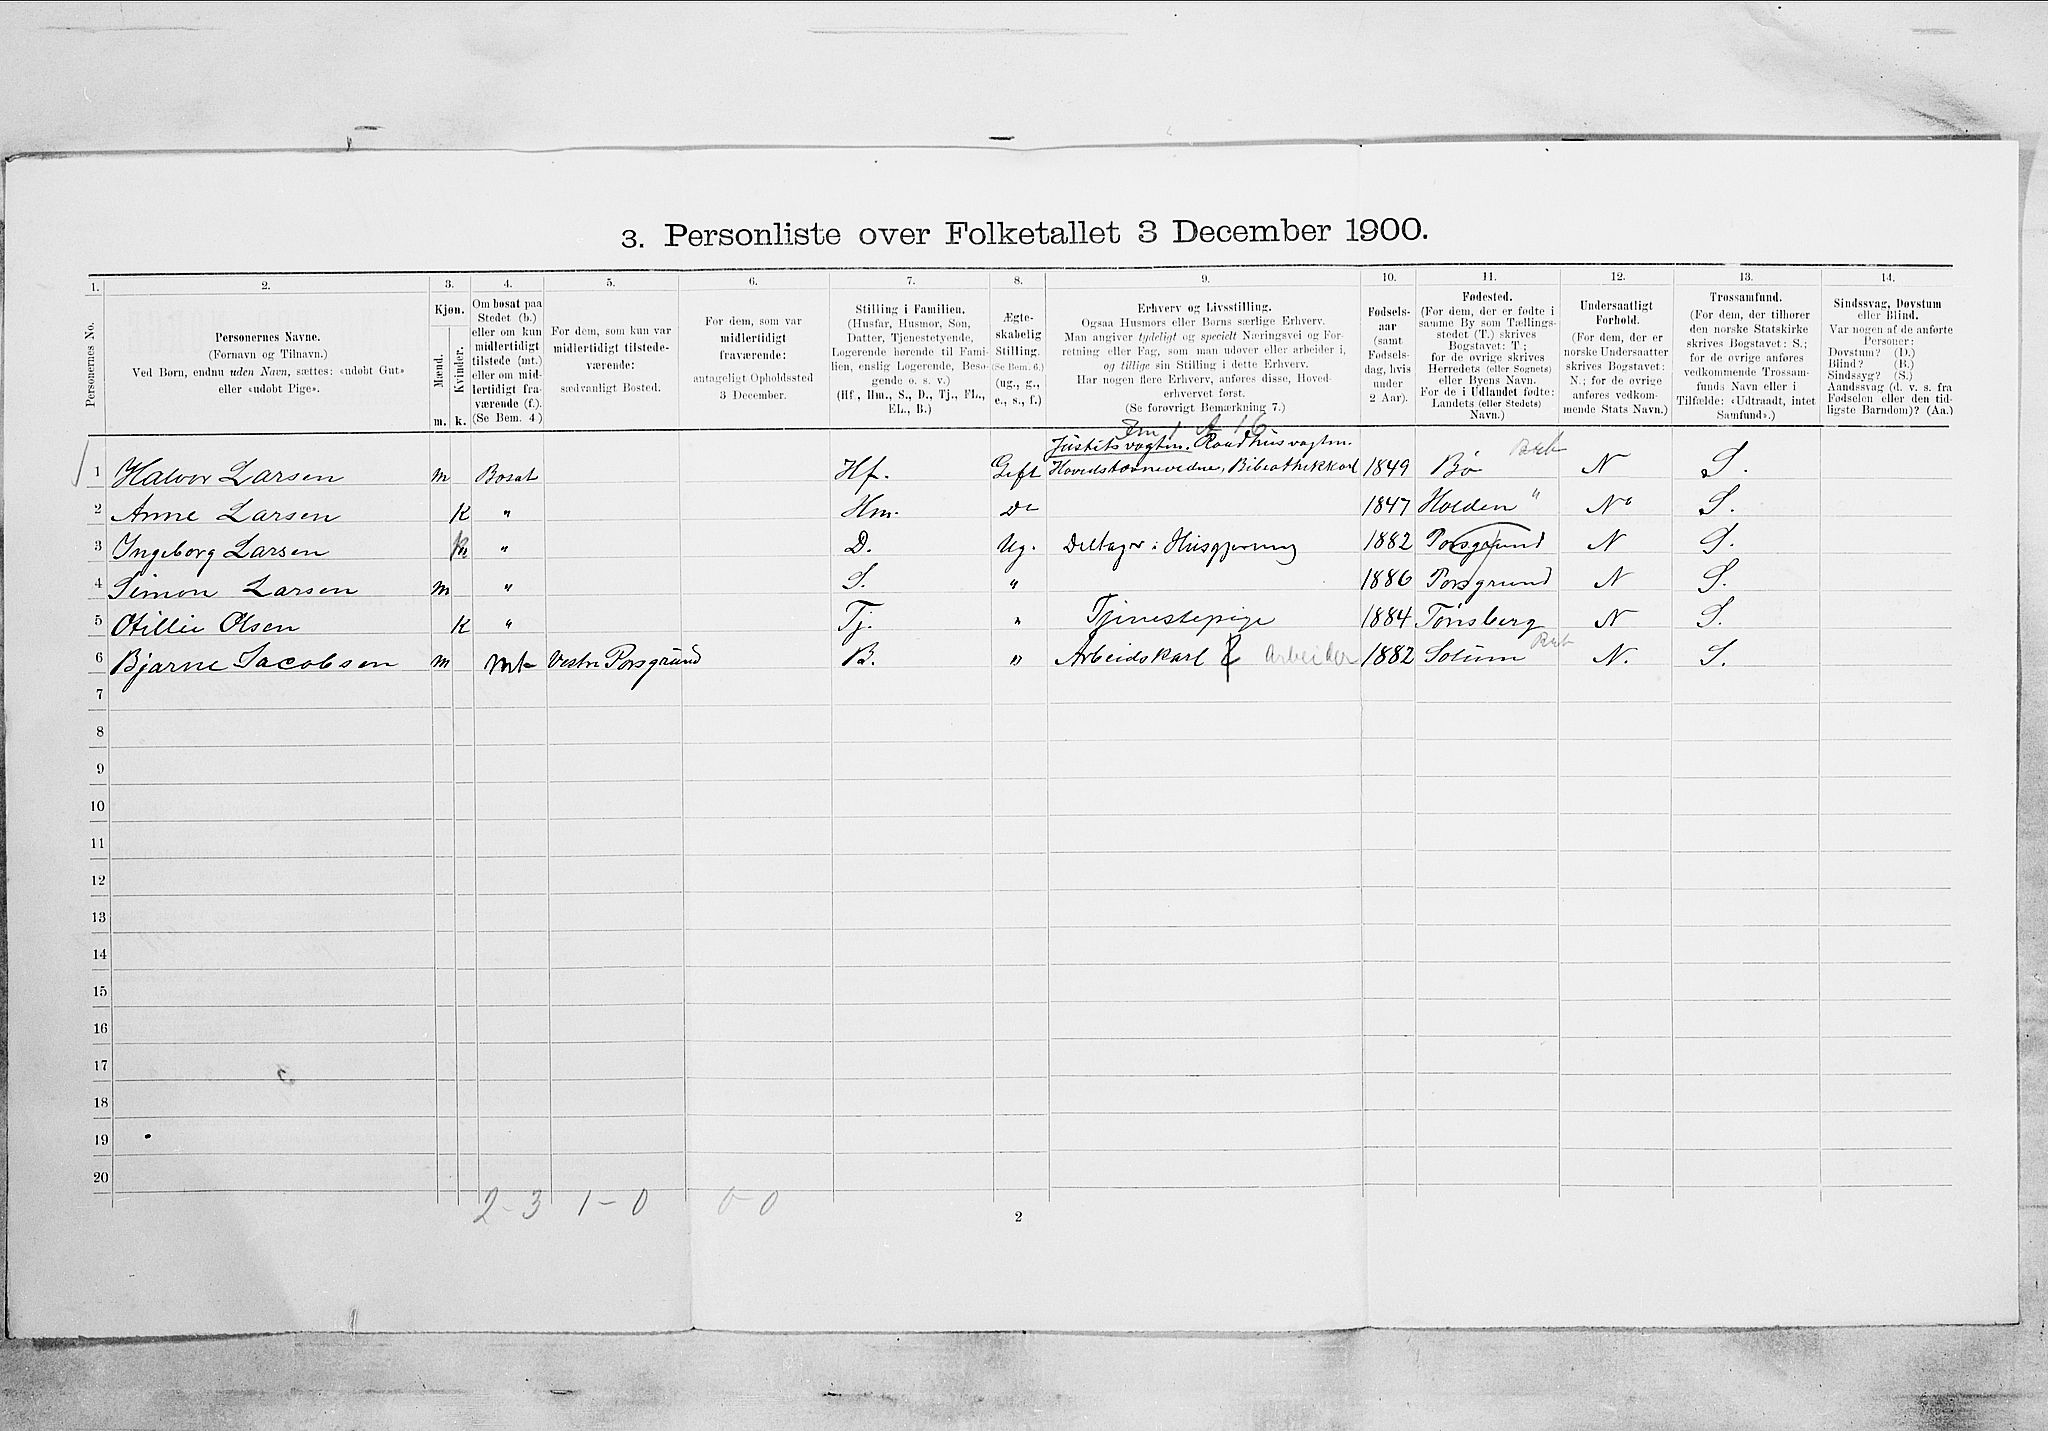 3. Personliste over Folketallet 3 December 1900.
1. 2. 3. 4. 5. 6. 7. 8. 9. 10. 11. 12. 13. 14.
Personernes No.
Personernes Navne.
(Fornavn og Tilnavn.)
Ved Børn, endnu uden Navn, sættes: «udøbt Gut»
eller «udøbt Pige».
Kjøn.
Mænd.
Kvinder.
m. k.
Om bosat paa
Stedet (b.)
eller om kun
midlertidigt
tilstede (mt.)
eller om mid-
lertidigt fra-
værende (f.).
(Se Bem. 4)
For dem, som kun var
midlertidigt tilstede-
værende:
sædvanligt Bosted.
For dem, som var
midlertidigt
fraværende:
antageligt Opholdssted
3 December.
Stilling i Familien.
(Husfar, Husmor, Søn,
Datter, Tjenestetyende,
Logerende hørende til Fami-
lien, enslig Logerende, Besø-
gende o. s. v.)
(Hf., Hm., S., D., Tj., FL.,
EL., B.)
Ægte-
skabelig
Stilling.
(Se Bem. 6.)
(ug., g.,
e., s., f.)
Erhverv og Livsstilling.
Ogsaa Husmors eller Børns særlige Erhverv.
Man angiver tydeligt og specielt Næringsvei og For-
retning eller Fag, som man udøver eller arbeider i,
og tillige sin Stilling i dette Erhverv.
Har nogen flere Erhverv, anføres disse, Hoved-
erhvervet først.
(Se forøvrigt Bemærkning 7.)
Fødsels-
aar
(samt
Fødsels-
dag, hvis
under
2 Aar).
Fødested.
(For dem, der er fødte i
samme By som Tællings-
stedet (T.) skrives
Bogstavet: T.;
for de øvrige skrives
Herredets (eller Sognets)
eller Byens Navn.
For de i Udlandet fødte:
Landets (eller Stedets)
Navn.)
Undersaatligt
Forhold.
(For dem, der er
norske Undersaatter
skrives Bogstavet:
N.; for de øvrige
anføres vedkom-
mende Stats Navn.)
Trossamfund.
(For dem, der tilhører
den norske Statskirke
skrives Bogstavet: S.;
for de øvrige anføres
vedkommende Trossam-
funds Navn eller i
Tilfælde: «Udtraadt, intet
Samfund».)
Sindssvag, Døvstum
eller Blind.
Var nogen af de anførte
Personer:
Døvstum? (D.)
Blind? (B.)
Sindssyg? (S.)
Aandssvag (d. v. s. fra
Fødselen eller den tid-
ligste Barndom)? (Aa.)
Justitsvagtm. Raadhusvagtm.
1 Halvor Larsen m Bosat Hf. Gift 1849 Bø N S.
2 Anne Larsen K " Hm. Do 1847 Holden " N S.
3 Ingeborg Larsen k " D. Ug. Deltager i Husgjerning 1882 Porsgrund N S.
4 Simon Larsen m " S. " 1886 Porsgrund N S.
5 Otillie Olsen K " Tj. " Tjenestepige 1884 Tønsberg N S.
6 Bjarne Jacobsen m mt Vestre Porsgrund B. " Arbeidskarl Arbeider 1882 Solum N. S.
7
8
9
10
11
12
13
14
15
16
17
18
19
20
2-3 1-0 0-0
2